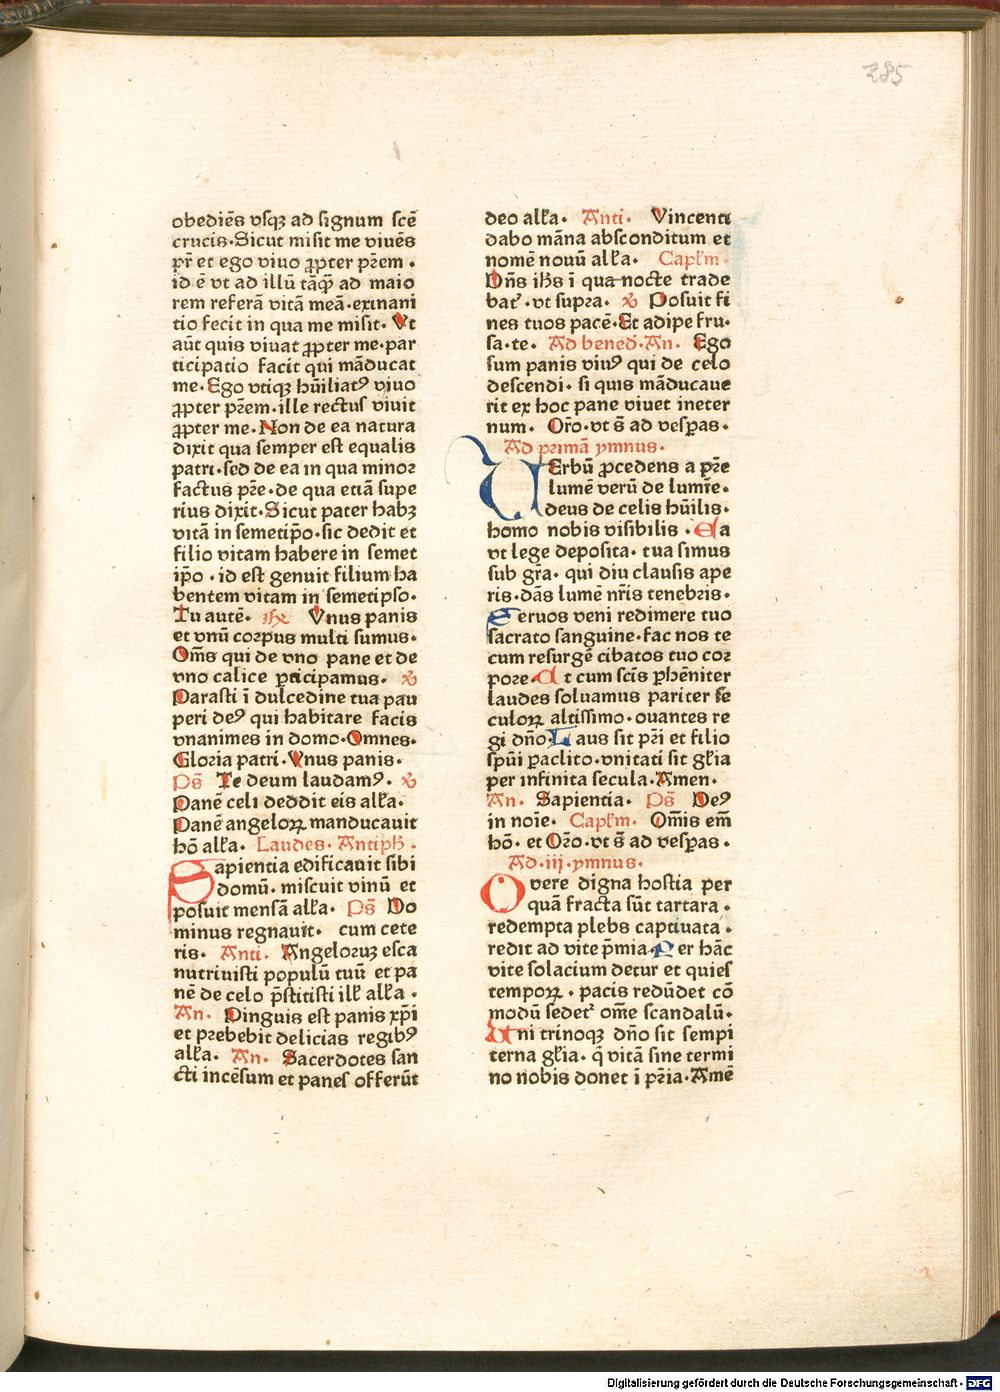 285
obediēs vsqꝫ ad signum scē
crucis·Sicut misit me viuēs
pr̄ et ego viuo ꝓpter pr̄em·
id ē vt ad illū tāꝙ̄ ad maio
rem referā vitā meā·exinani
tio fecit in qua me misit·Vt
aūt quis viuat ꝓpter me·par
ticipatio facit qui māducat
me·Ego vtiqꝫ hūiliatꝰ viuo
ꝓpter pr̄em·ille rectus viuit
ꝓpter me·Non de ea natura
dixit qua semper est equalis
patri·sed de ea in qua minor
factus pr̄e·de qua etiā supe
rius dixit·Sicut pater habꝫ
vitā in semetip̄o·sic dedit et
filio vitam habere in semet
ip̄o·id est genuit filium ha
bentem vitam in semetipso·
Tu autē· Vnus panis
et vnū corpus multi sumus·
Om̄s qui de vno pane et de
vno calice ꝑticipamus· ℟
Parasti ī dulcedine tua pau
peri deꝰ qui habitare facis
vnanimes in domo·Omnes·
Gloria patri·Vnus panis·
Ps̄ Te deum laudamꝰ· ℟
Panē celi deddit eis alła·
Panē angeloꝝ manducauit
hō alła· Laudes·Antiph·
Sapientia edificauit sibi
domū·miscuit vinū et
posuit mensā alła· Ps̄ Do
minus regnauit· cum cete
ris· Anti· Angeloruꝫ esca
nutriuisti populū tuū et pa
nē de celo p̄stitisti ill̄ alła·
An· Pinguis est panis xp̄i
et prebebit delicias regibꝰ
alła· An· Sacerdotes san
cti incēsum et panes offerūt
deo alła· Anti· Vincenti
dabo māna absconditum et
nomē nouū alła· Capłm·
Dn̄s ih̄s ī qua nocte trade
bat᷑·vt supra· ℟ Posuit fi
nes tuos pacē·Et adipe fru·
sa·te· Ad bened̄·An· Ego
sum panis viuꝰ qui de celo
descendi·si quis māducaue
rit ex hoc pane viuet ineter
num· Oro̅·vt s̄ ad vesꝑas·
Ad primā ymnus·
UErbū ꝓcedens a pr̄e
lumē verū de lumīe·
deus de celis hūilis·
homo nobis visibilis·Ea
vt lege deposita·tua simus
sub gr̄a·qui diu clausis ape
ris·dās lumē nr̄is tenebris·
Seruos veni redimere tuo
sacrato sanguine·fac nos te
cum resurgē cibatos tuo cor
pore·At cum scīs ꝑhēniter
laudes soluamus pariter se
culoꝝ altissimo·ouantes re
gi dn̄o·Laus sit pr̄i et filio
spūi paclito·vnitati sit głia
per infinita secula·Amen·
An· Sapientia· Ps̄ Deꝰ
in noīe· Capłm· Om̄is em̄
hō·et Oro̅·vt s̄ ad vesꝑas·
Ad·iij·ymnus·
Overe digna hostia per
quā fracta sūt tartara·
redempta plebs captiuata·
redit ad vite p̄mia·Per hāc
vite solacium detur et quies
tempoꝝ·pacis redūdet cō
modū sedet᷑ om̄e scandalū·
Uni trinoqꝫ dn̄o sit sempi
terna głia·q̄ vitā sine termi
no nobis donet ī pr̄ia·Amē
Digitalisierung gefördert durch die Deutsche Forschungsgemeinschaft - DFG